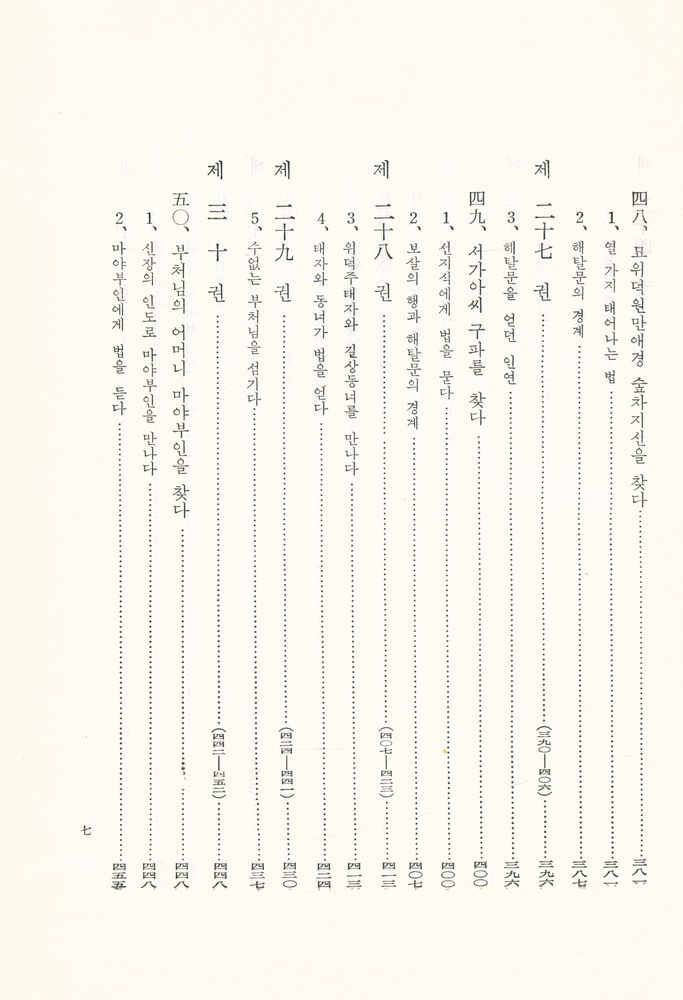 四八、묘위덕원만애경 숲차지신을 찾다……三八一
1、열 가지 태어나는 법……三八一
2、해탈문의 경계……三八七
제 二十七 권……(三九〇—四〇六)……三九六
3、해탈문을 얻던 인연……三九六
四九、서가아씨 구파를 찾다……四〇〇
1、선지식에게 법을 묻다……四〇〇
2、보살의 행과 해탈문의 경계……四〇七
제 二十八 권……(四〇七—四二三)……四一三
3、위덕주태자와 길상동녀를 만나다……四一三
4、태자와 동녀가 법을 얻다……四二四
제 二十九 권……(四二四—四四一)……四三〇
5、수없는 부처님을 섬기다……四三七
제 三十 권……(四四二—四五二)……四四八
五〇、부처님의 어머니 마야부인을 찾다……四四八
1、신장의 인도로 마야부인을 만나다……四四八
2、마야부인에게 법을 듣다……四五五
七